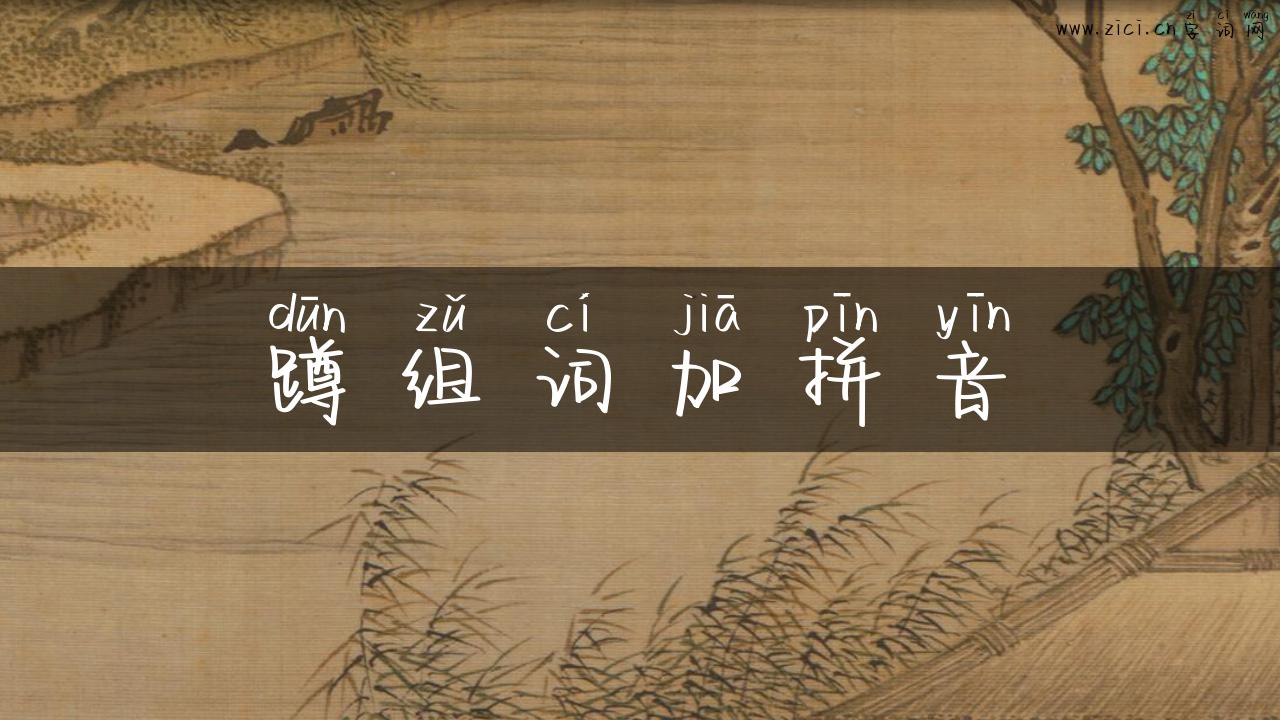 zì cí wǎng
www.zici.cn字词网
dūn zǔ cí jiā pīn yīn
蹲组词加拼音